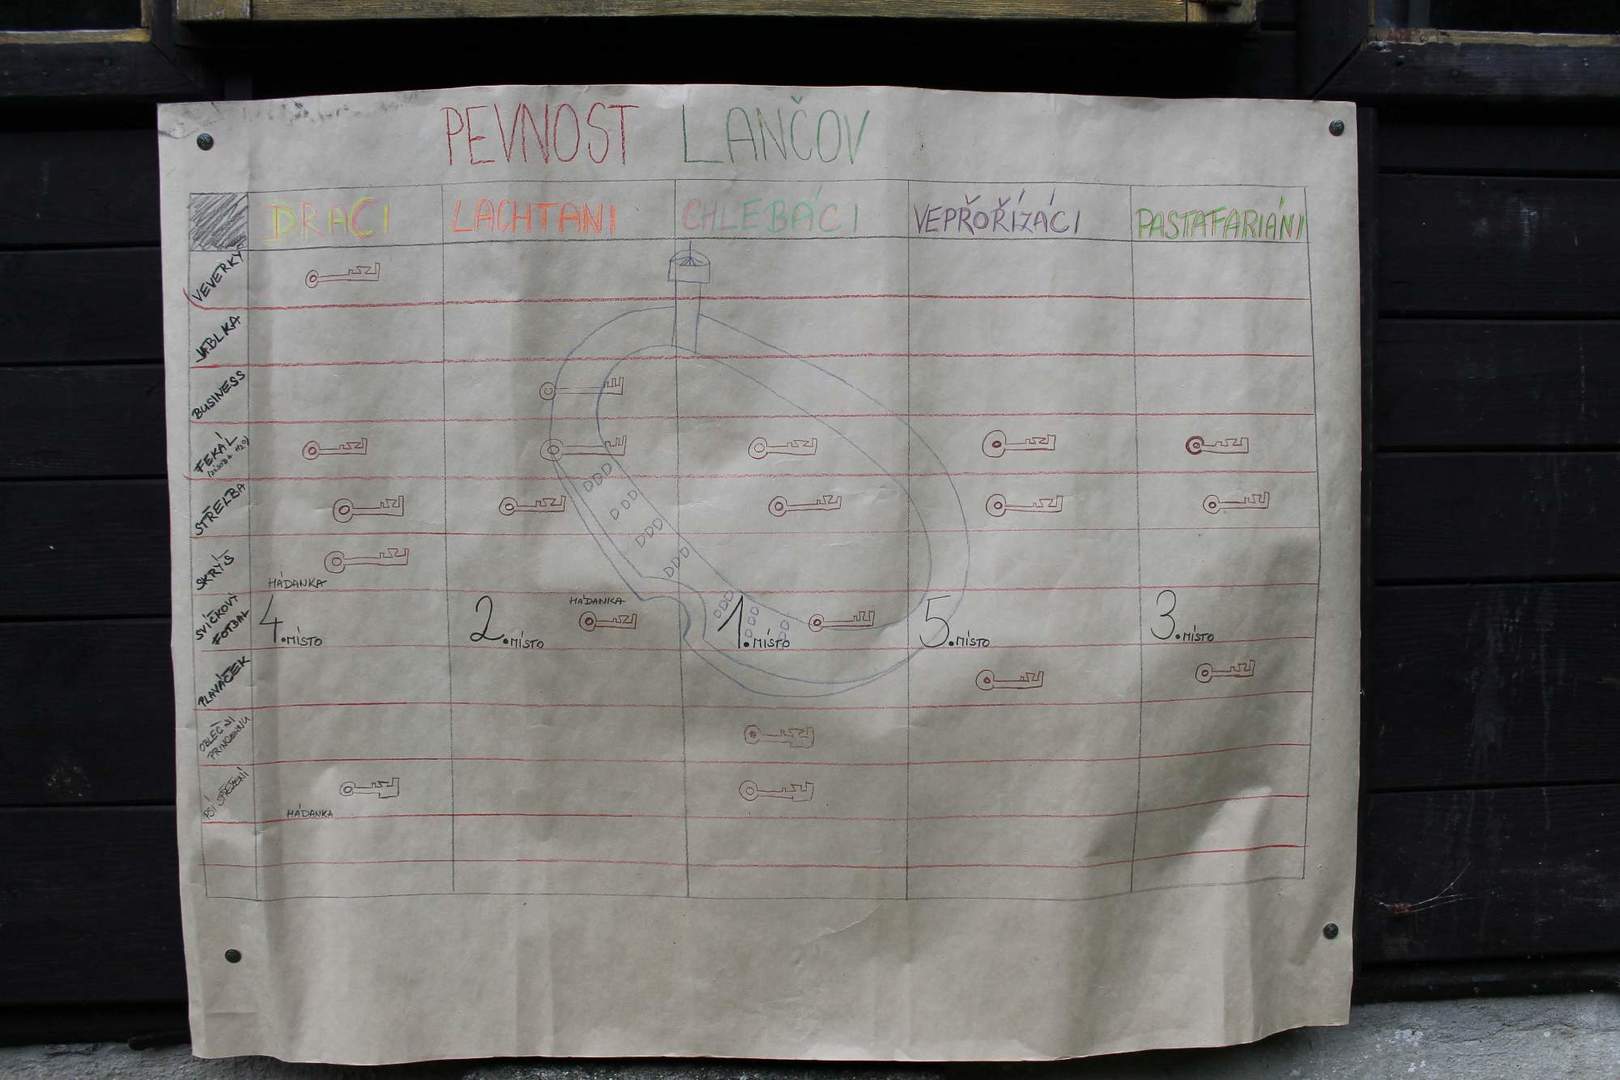 PEVNOST LANČOV
DRACI LACHTANI CHLEBÁCI VEPŘOŘÍZÁCI PASTAFARIÁNI
VEVERKY
JABLKA
BUSINESS
FEKÁL
STŘELBA
SKRÝŠ
HÁDANKA
SVÍČKOVÝ FOTBAL
HÁDANKA
4. MÍSTO 2. MÍSTO 1. MÍSTO 5. MÍSTO 3. MÍSTO
PLAVÁČEK
OBLEČ SI PRINCEZNU
PSÍ SPŘEŽENÍ
HÁDANKA